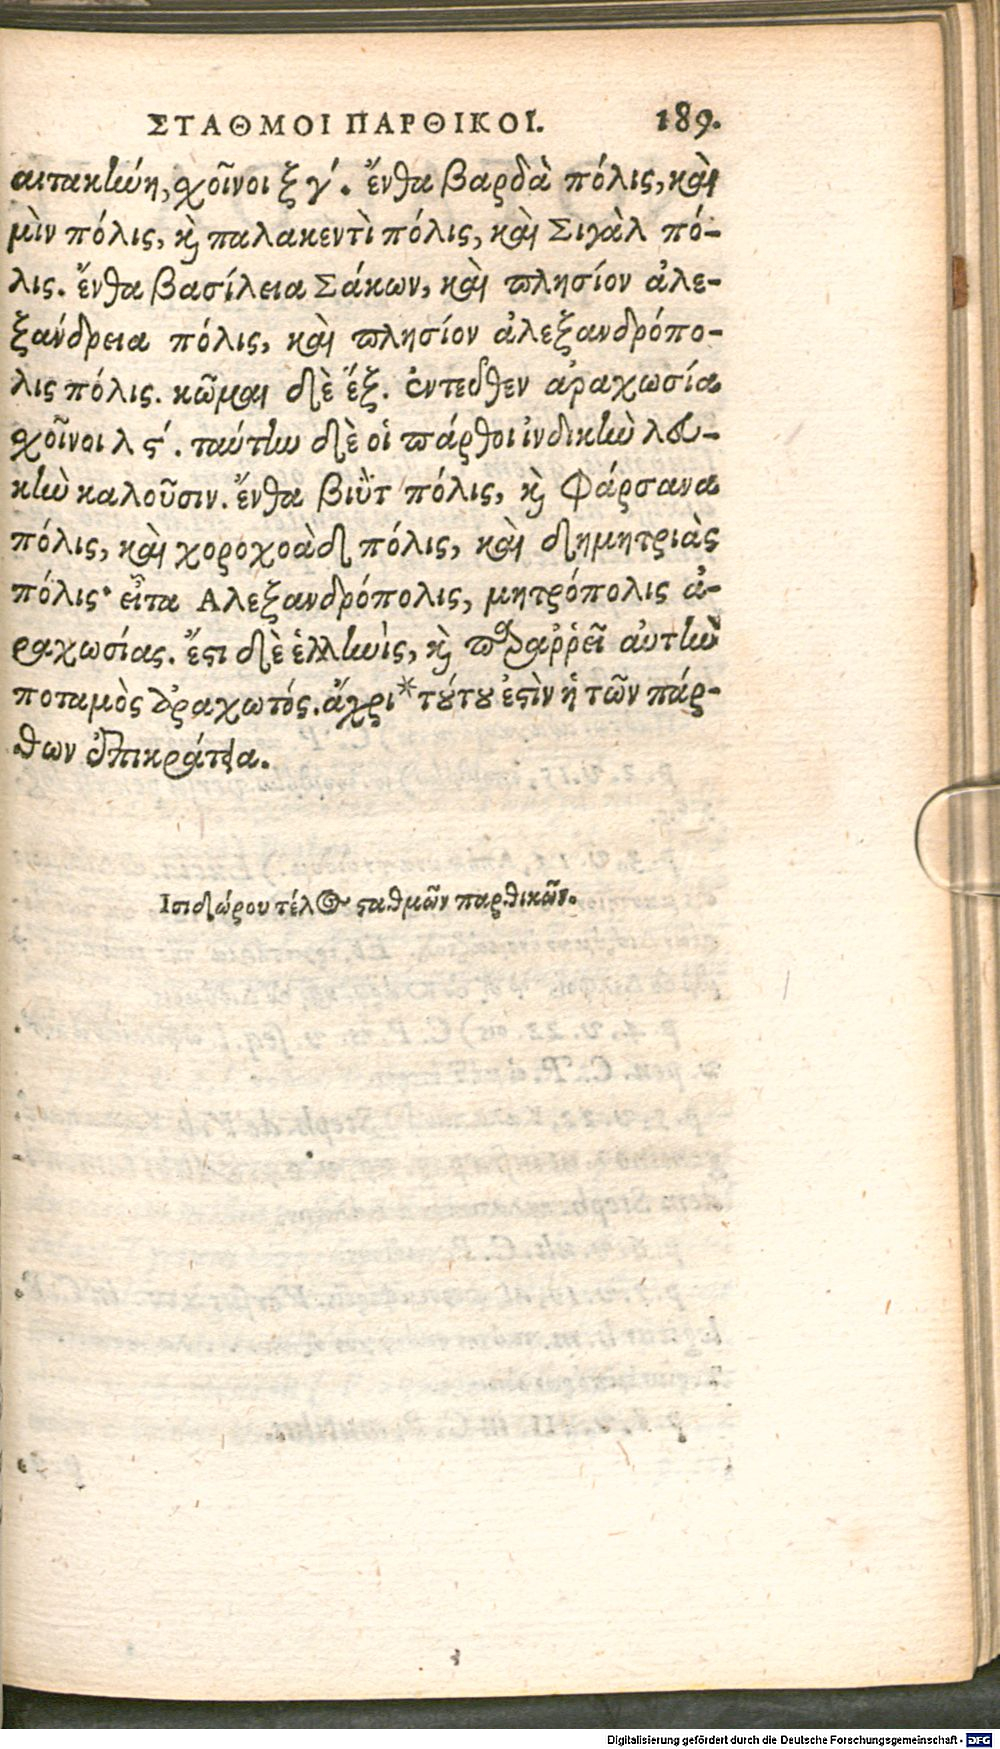 ΣΤΑΘΜΟΙ ΠΑΡΘΙΚΟΙ. 189.
αιτακηνή, χοῖνοι ξ γʹ. ἔνθα βαρδὰ πόλις, καὶ
μὶν πόλις, καὶ παλακεντὶ πόλις, καὶ Σιγὰλ πό-
λις. ἔνθα βασίλεια Σάκων, καὶ πλησίον ἀλε-
ξάνδρεια πόλις, καὶ πλησίον ἀλεξανδρόπο-
λις πόλις. κῶμαι δὲ ἕξ. ἐντεῦθεν ἀραχωσία
χοῖνοι λ ϛʹ. ταύτην δὲ οἱ πάρθοι ἰνδικὴν λευ-
κὴν καλοῦσιν. ἔνθα βιὺτ πόλις, καὶ Φάρσανα
πόλις, καὶ χοροχοὰδ πόλις, καὶ δημητριὰς
πόλις· εἶτα Αλεξανδρόπολις, μητρόπολις ἀ-
ραχωσίας. ἔστι δὲ ἑλληνὶς, καὶ παραῤῥεῖ αὐτὴν
ποταμὸς ἀραχωτός. ἄχρι * τούτου ἐστὶν ἡ τῶν πάρ-
θων ἐπικράτεια.
Ισιδώρου τέλος σταθμῶν παρθικῶν.
Digitalisierung gefördert durch die Deutsche Forschungsgemeinschaft - DFG